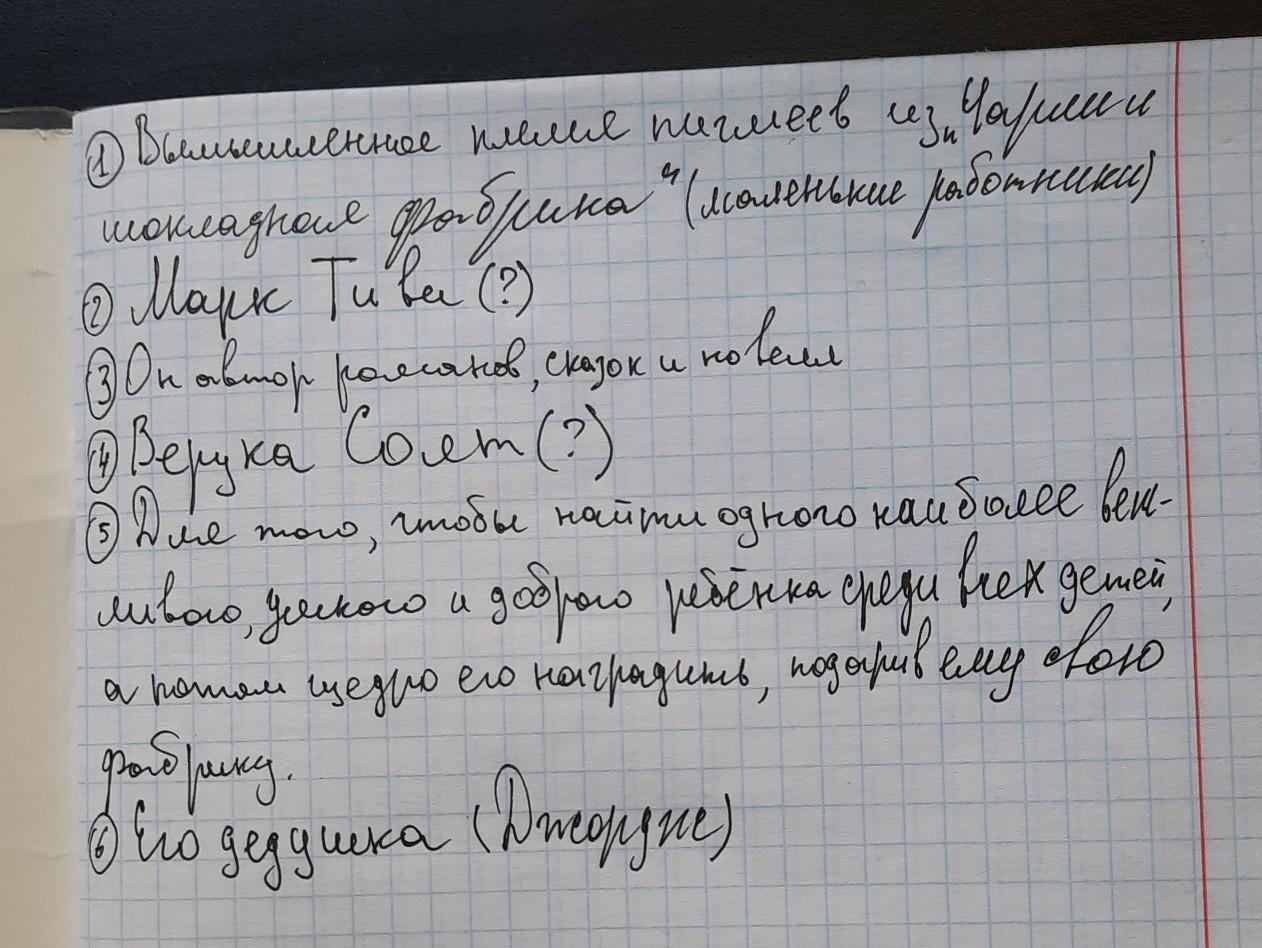 ① Вымышленное племя пигмеев из „Чарли и
шокладная фабрика“ (маленькие работники)
② Марк Тиви (?)
③ Он автор романов, сказок и новелл
④ Верука Солт (?)
⑤ Для того, чтобы найти одного наиболее веж-
ливого, умного и доброго ребёнка среди всех детей,
а потом щедро его наградить, подарив ему свою
фабрику.
⑥ Его дедушка (Джордж)